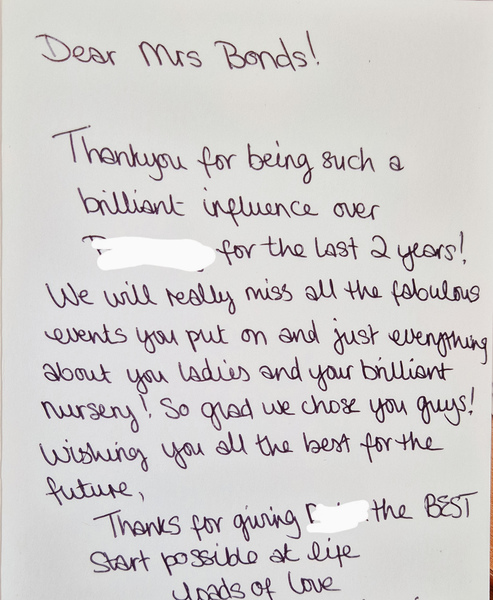 Dear Mrs Bonds!
Thankyou for being such a
brilliant influence over
for the last 2 years!
We will really miss all the fabulous
events you put on and just everything
about you ladies and your brilliant
nursery! So glad we chose you guys!
Wishing you all the best for the
future,
Thanks for giving the BEST
Start possible at life
Loads of love